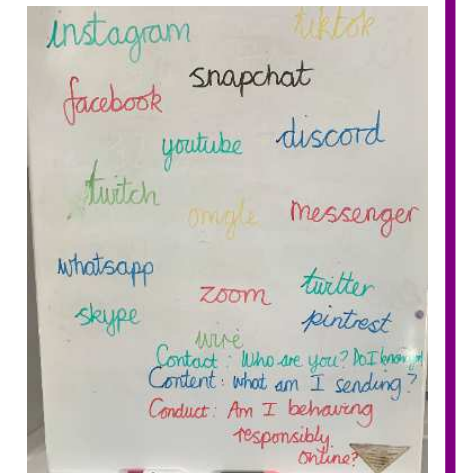 instagram
tiktok
snapchat
facebook
youtube
discord
twitch
omgle
messenger
whatsapp
zoom
twitter
skype
pintrest
wire
Contact: Who are you? Do I know
Content: what am I sending?
Conduct: Am I behaving
responsibly
online?